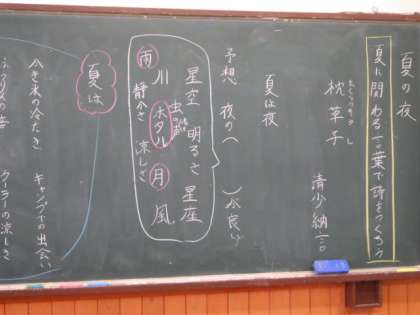 夏の夜
夏に関わる言葉で詩をつくろう
枕草子
清少納言
夏は夜
予想 夜の( )が良い
星空 明るさ 星座
虫の声
川 ホタル 月 風
雨 静かさ 涼しさ
夏は
かき氷の冷たさ
キャンプでの出会い
の音
クーラーの涼しさ